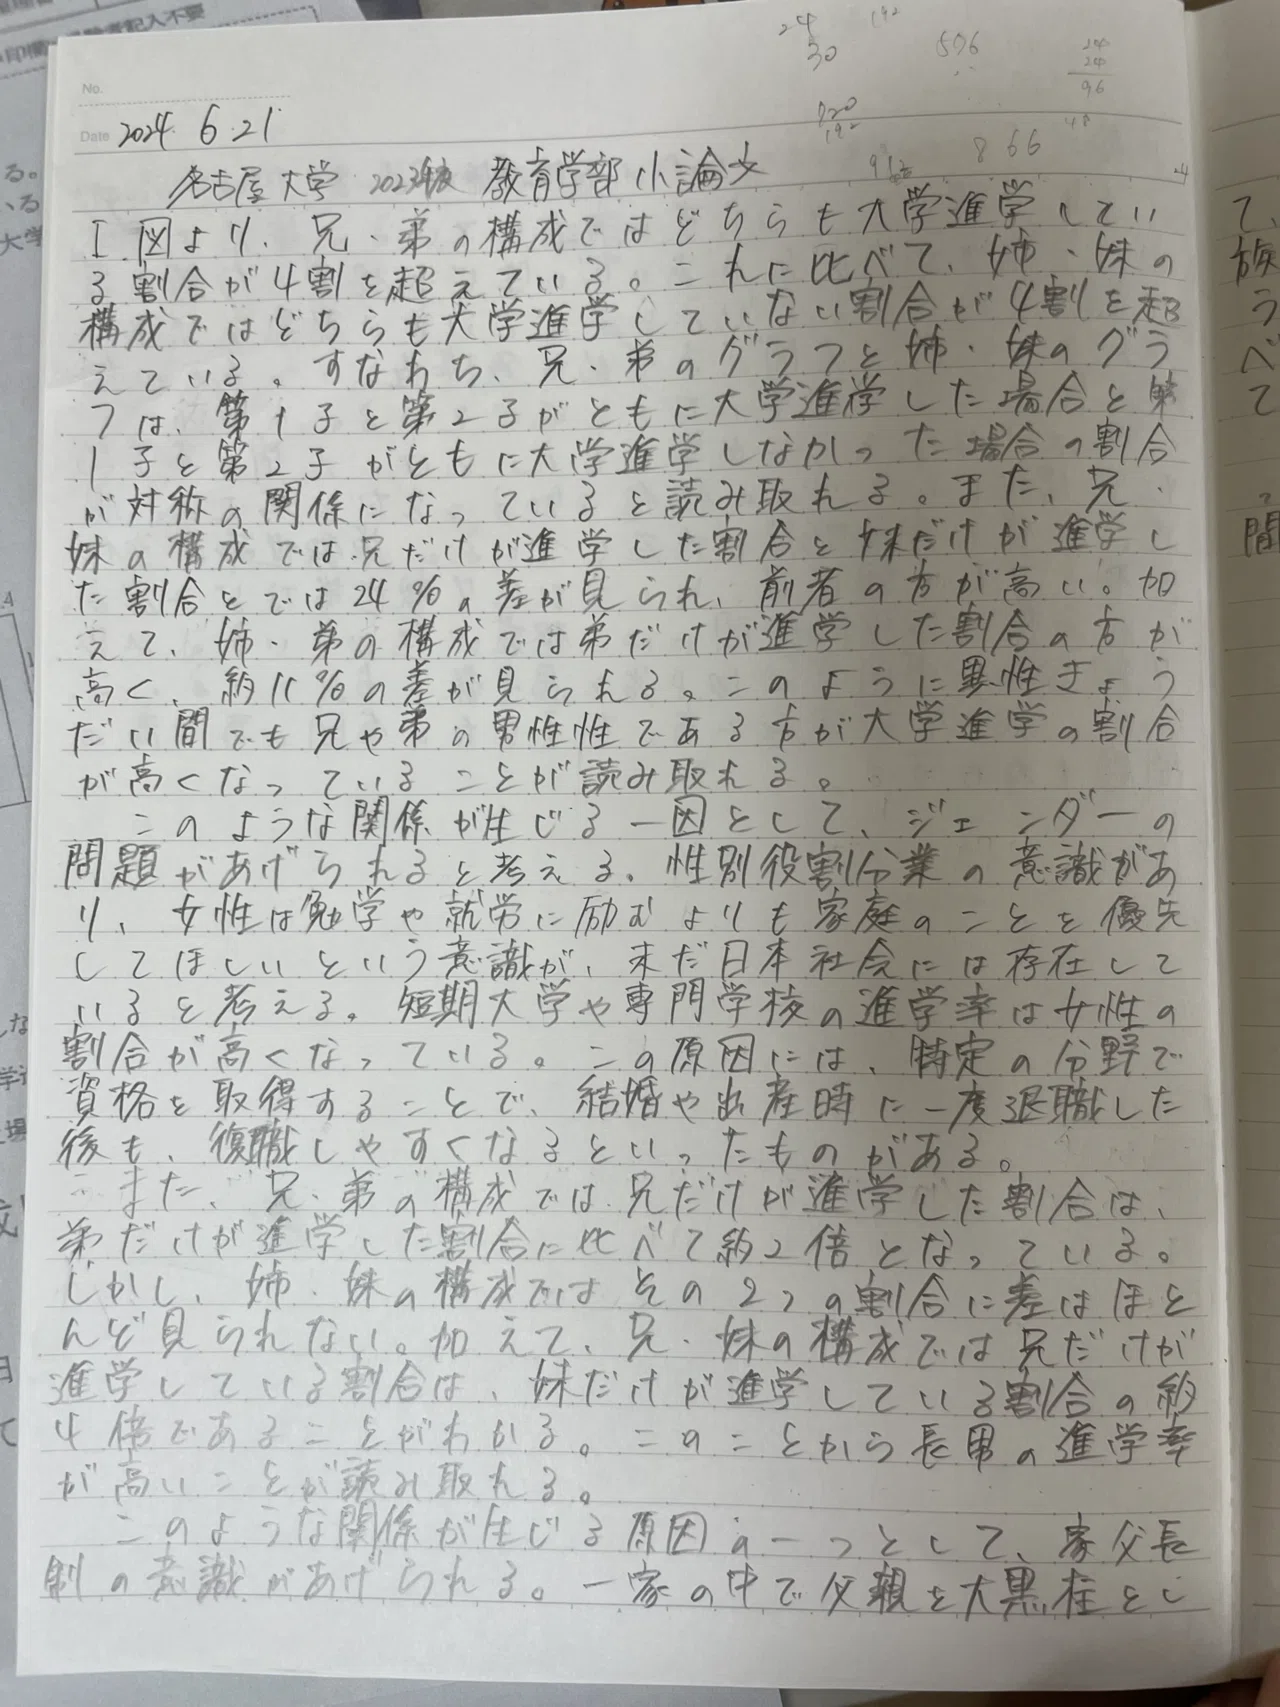 印欄
記入不要
24
30
192
506
24
24
96
No.
Date 2024. 6.21
920
192
48
866
912
名古屋大学 2023年度 教育学部 小論文
Ⅰ図より、兄・弟の構成ではどちらも大学進学してい
る割合が4割を超えている。これに比べて、姉・妹の
構成ではどちらも大学進学していない割合が4割を超
えている。すなわち、兄・弟のグラフと姉・妹のグラ
フは、第1子と第2子がともに大学進学した場合と第
1子と第2子がともに大学進学しなかった場合の割合
が対称の関係になっていると読み取れる。また、兄・
妹の構成では兄だけが進学した割合と妹だけが進学し
た割合とでは24%の差が見られ、前者の方が高い。加
えて、姉・弟の構成では弟だけが進学した割合の方が
高く、約11%の差が見られる。このように異性きょう
だい間でも兄や弟の男性性である方が大学進学の割合
が高くなっていることが読み取れる。
このような関係が生じる一因として、ジェンダーの
問題があげられると考える。性別役割分業の意識があ
り、女性は勉学や就労に励むよりも家庭のことを優先
してほしいという意識が、未だ日本社会には存在して
いると考える。短期大学や専門学校の進学率は女性の
割合が高くなっている。この原因には、特定の分野で
資格を取得することで、結婚や出産時に一度退職した
後も、復職しやすくなるといったものがある。
また、兄・弟の構成では兄だけが進学した割合は、
弟だけが進学した割合に比べて約2倍となっている。
しかし、姉・妹の構成ではその2つの割合に差はほと
んど見られない。加えて、兄・妹の構成では兄だけが
進学している割合は、妹だけが進学している割合の約
4倍であることがわかる。このことから長男の進学率
が高いことが読み取れる。
このような関係が生じる原因の一つとして、家父長
制の意識があげられる。一家の中で父親を大黒柱とし
る。
いる
大学
て、
族
う
べ
て
間